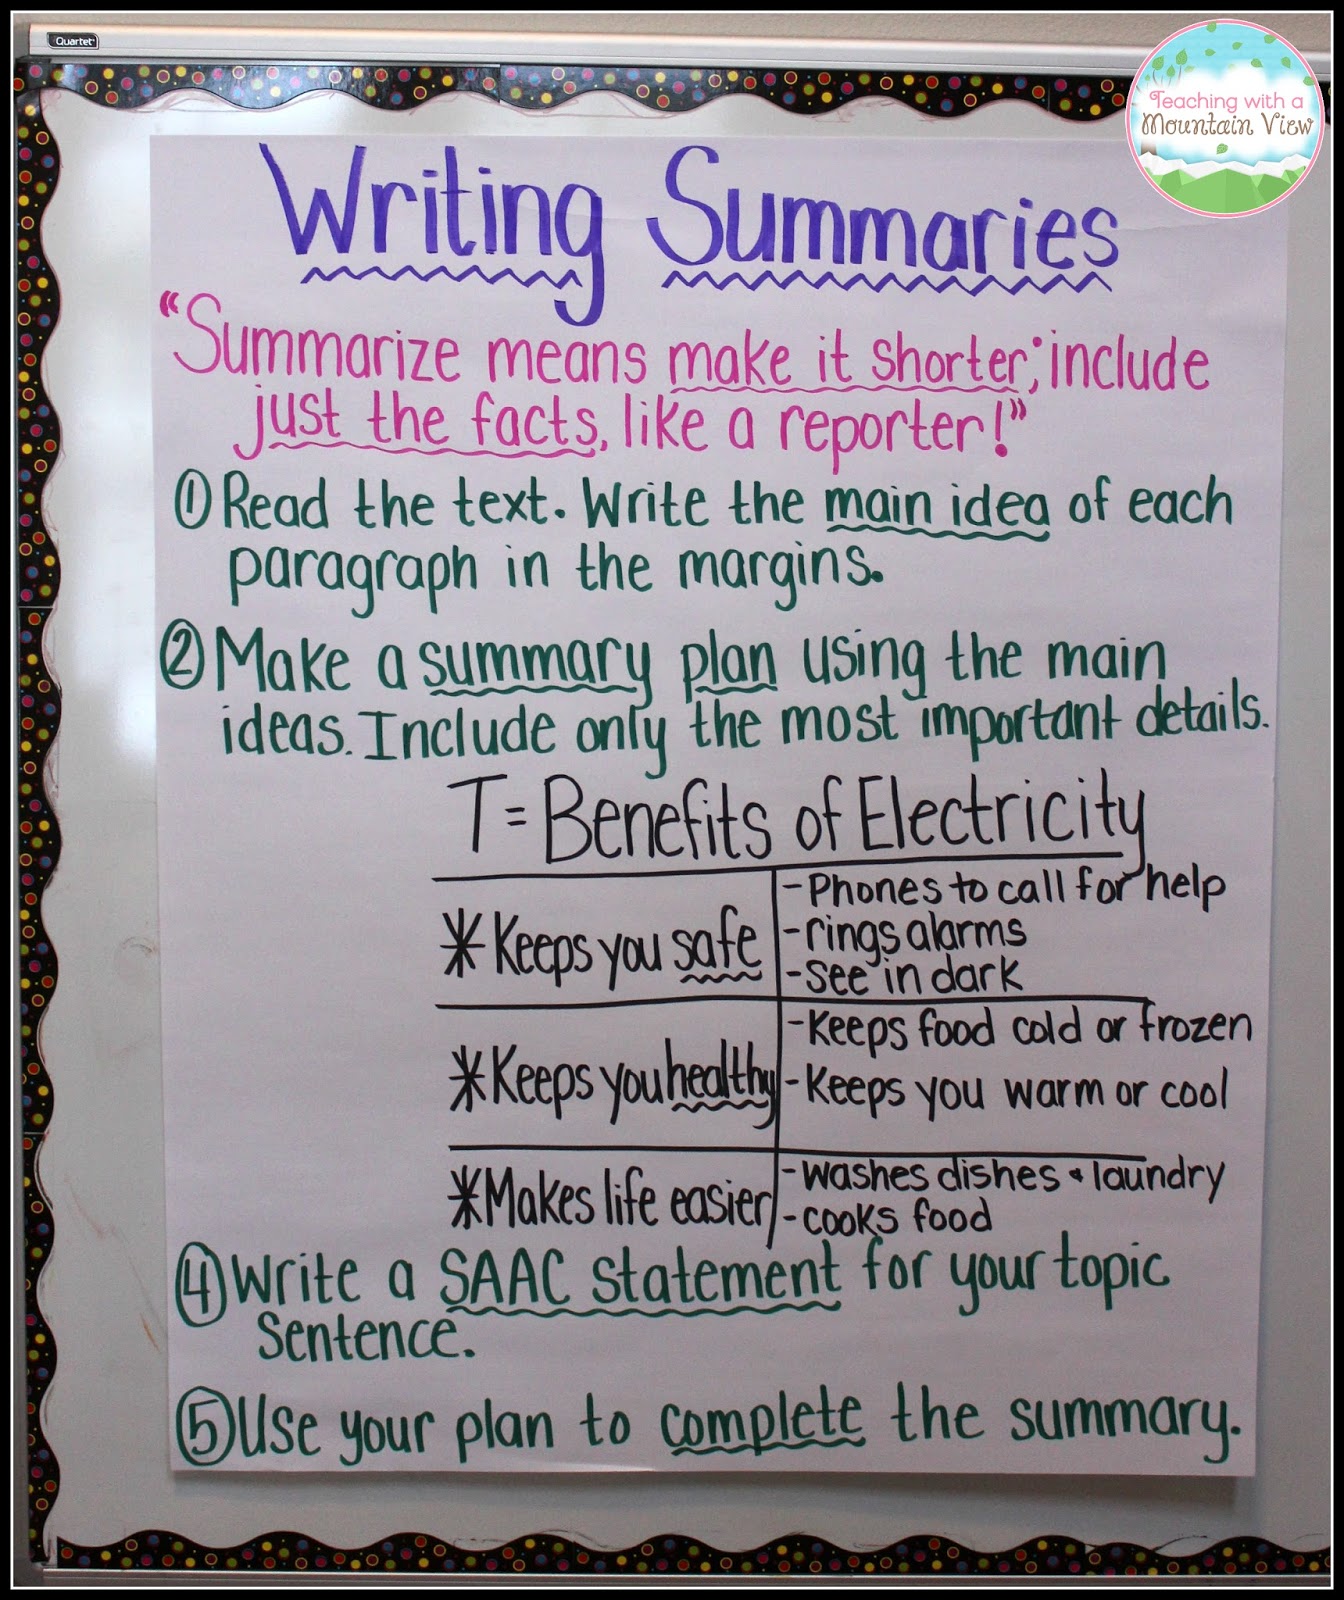 Quartet
Teaching with a
Mountain View
Writing Summaries
"Summarize means make it shorter; include
just the facts, like a reporter!"
① Read the text. Write the main idea of each
paragraph in the margins.
② Make a summary plan using the main
ideas. Include only the most important details.
T = Benefits of Electricity
* Keeps you safe
- Phones to call for help
- rings alarms
- see in dark
* Keeps you healthy
- Keeps food cold or frozen
- Keeps you warm or cool
* Makes life easier
- washes dishes + laundry
- cooks food
④ Write a SAAC statement for your topic
sentence.
⑤ Use your plan to complete the summary.